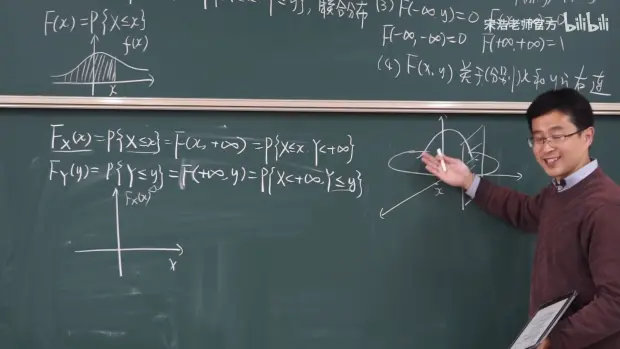 F(x)=P{X≤x}
f(x)
x
≤y}, 联合分布
(3) F(-∞,y)=0
F(-∞,-∞)=0 F(+∞,+∞)=1
(4) F(x,y) 关于(分别)x和y 右连
宋浩老师官方 bilibili
F_X(x)=P{X≤x}=F(x,+∞)=P{X≤x,Y<+∞}
F_Y(y)=P{Y≤y}=F(+∞,y)=P{X<+∞,Y≤y}
F_X(x)
x
x